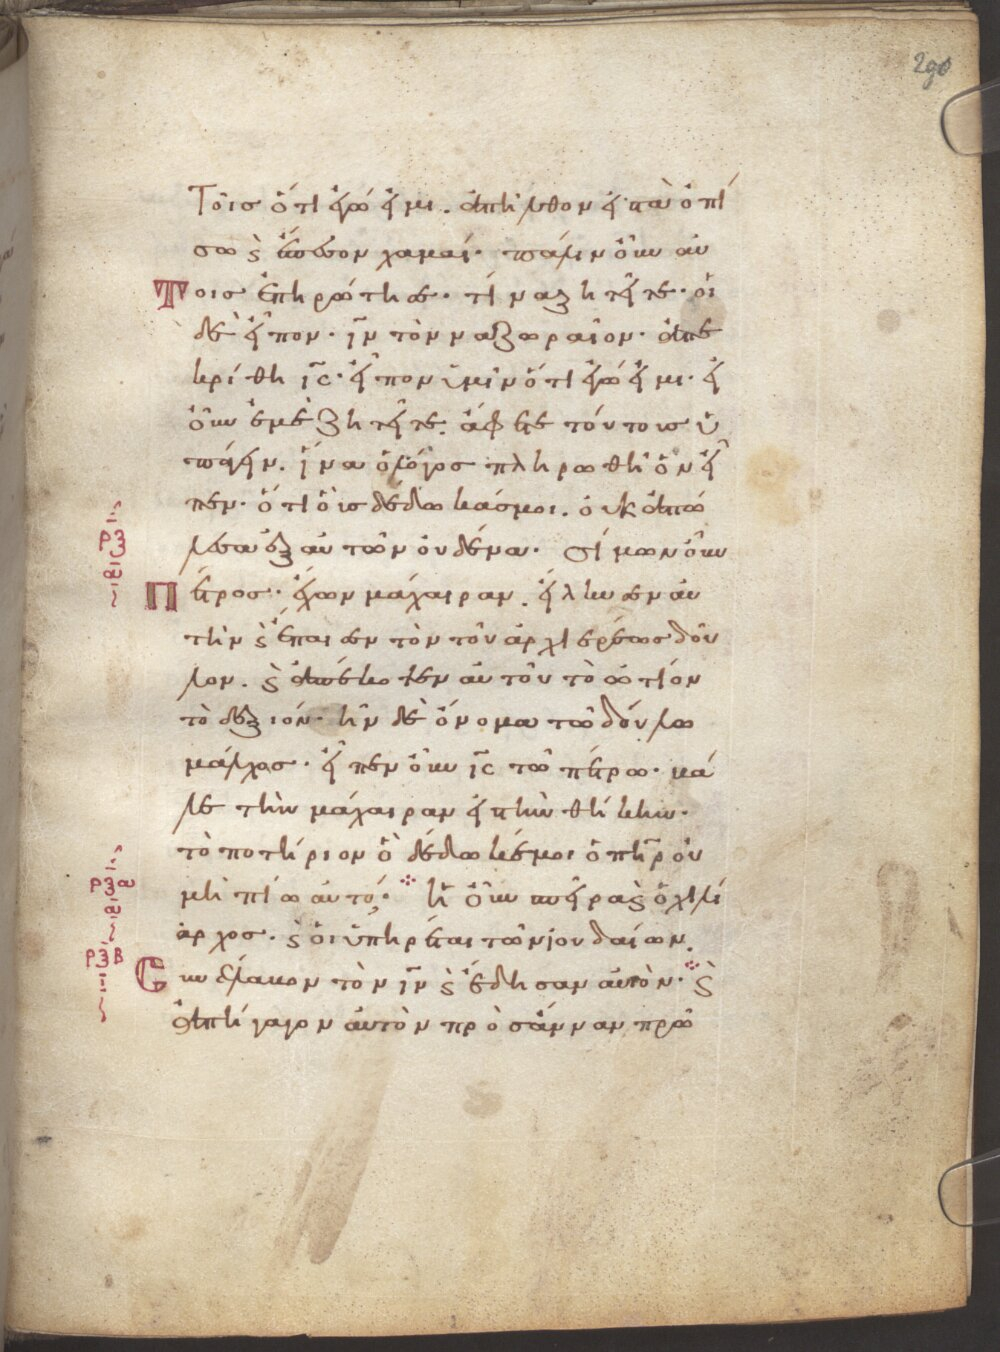 290
τοῖς ὅτι ἐγώ εἰμι. ἀπῆλθον εἰς τὰ ὀπί
σω ϗ ἔπεσον χαμαί· πάλιν οὖν αὐ
τοῖς ἐπηρώτησε· τίνα ζητεῖτε· οἱ
δὲ εἶπον· ἰν τὸν ναζωραῖον· ἀπε
κρίθη ις· εἶπον ὑμῖν ὅτι ἐγώ εἰμι· εἰ
οὖν ἐμὲ ζητεῖτε. ἄφετε τούτους ὑ
πάγειν. ἵνα ὁ λόγος πληρωθῆ ὃν εἶ
πεν· ὅτι οὓς δέδωκάς μοι. οὐκ ἀπώ
λεσα ἐξ αὐτῶν οὐδένα· Σίμων οὖν
πέτρος· ἔχων μάχαιραν. εἵλκυσεν αὐ
τὴν ϗ ἔπαισεν τὸν τοῦ ἀρχιερέως δοῦ
λον. ϗ ἀπέκοψεν αὐτοῦ τὸ ὠτίον
τὸ δεξιόν· ἦν δὲ ὄνομα τῶ δούλω
μάλχος· εἶπεν οὖν ις τῶ πέτρω· βά
λε τὴν μάχαιραν εἰς τὴν θήκην·
ρξ
α
τὸ ποτήριον ὃ δέδωκέ μοι ὁ πηρ οὐ
μὴ πίω αὐτό· Ἡ οὖν σπεῖρα ϗ ὁ χιλί
ρξα
α
αρχος· ϗ οἱ ὑπηρέται τῶν ἰουδαίων
ρξβ
συνέλαβον τὸν ιν ϗ ἔδησαν αὐτὸν· ϗ
ἀπήγαγον αὐτὸν πρὸς ἄνναν πρῶ